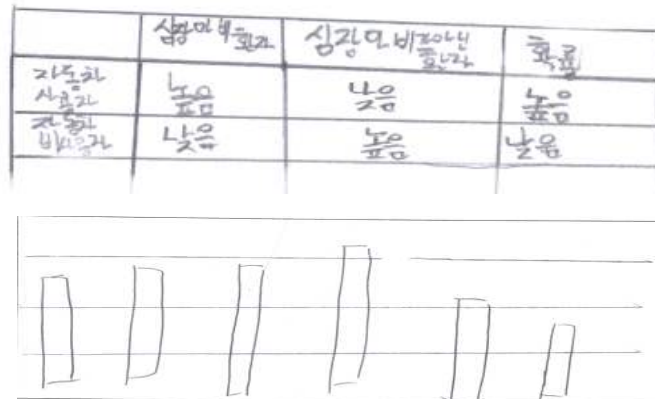 심장마비 환자 심장마비가 아닌 환자 확률
자동차 사용자 높음 낮음 높음
자동차 비사용자 낮음 높음 낮음